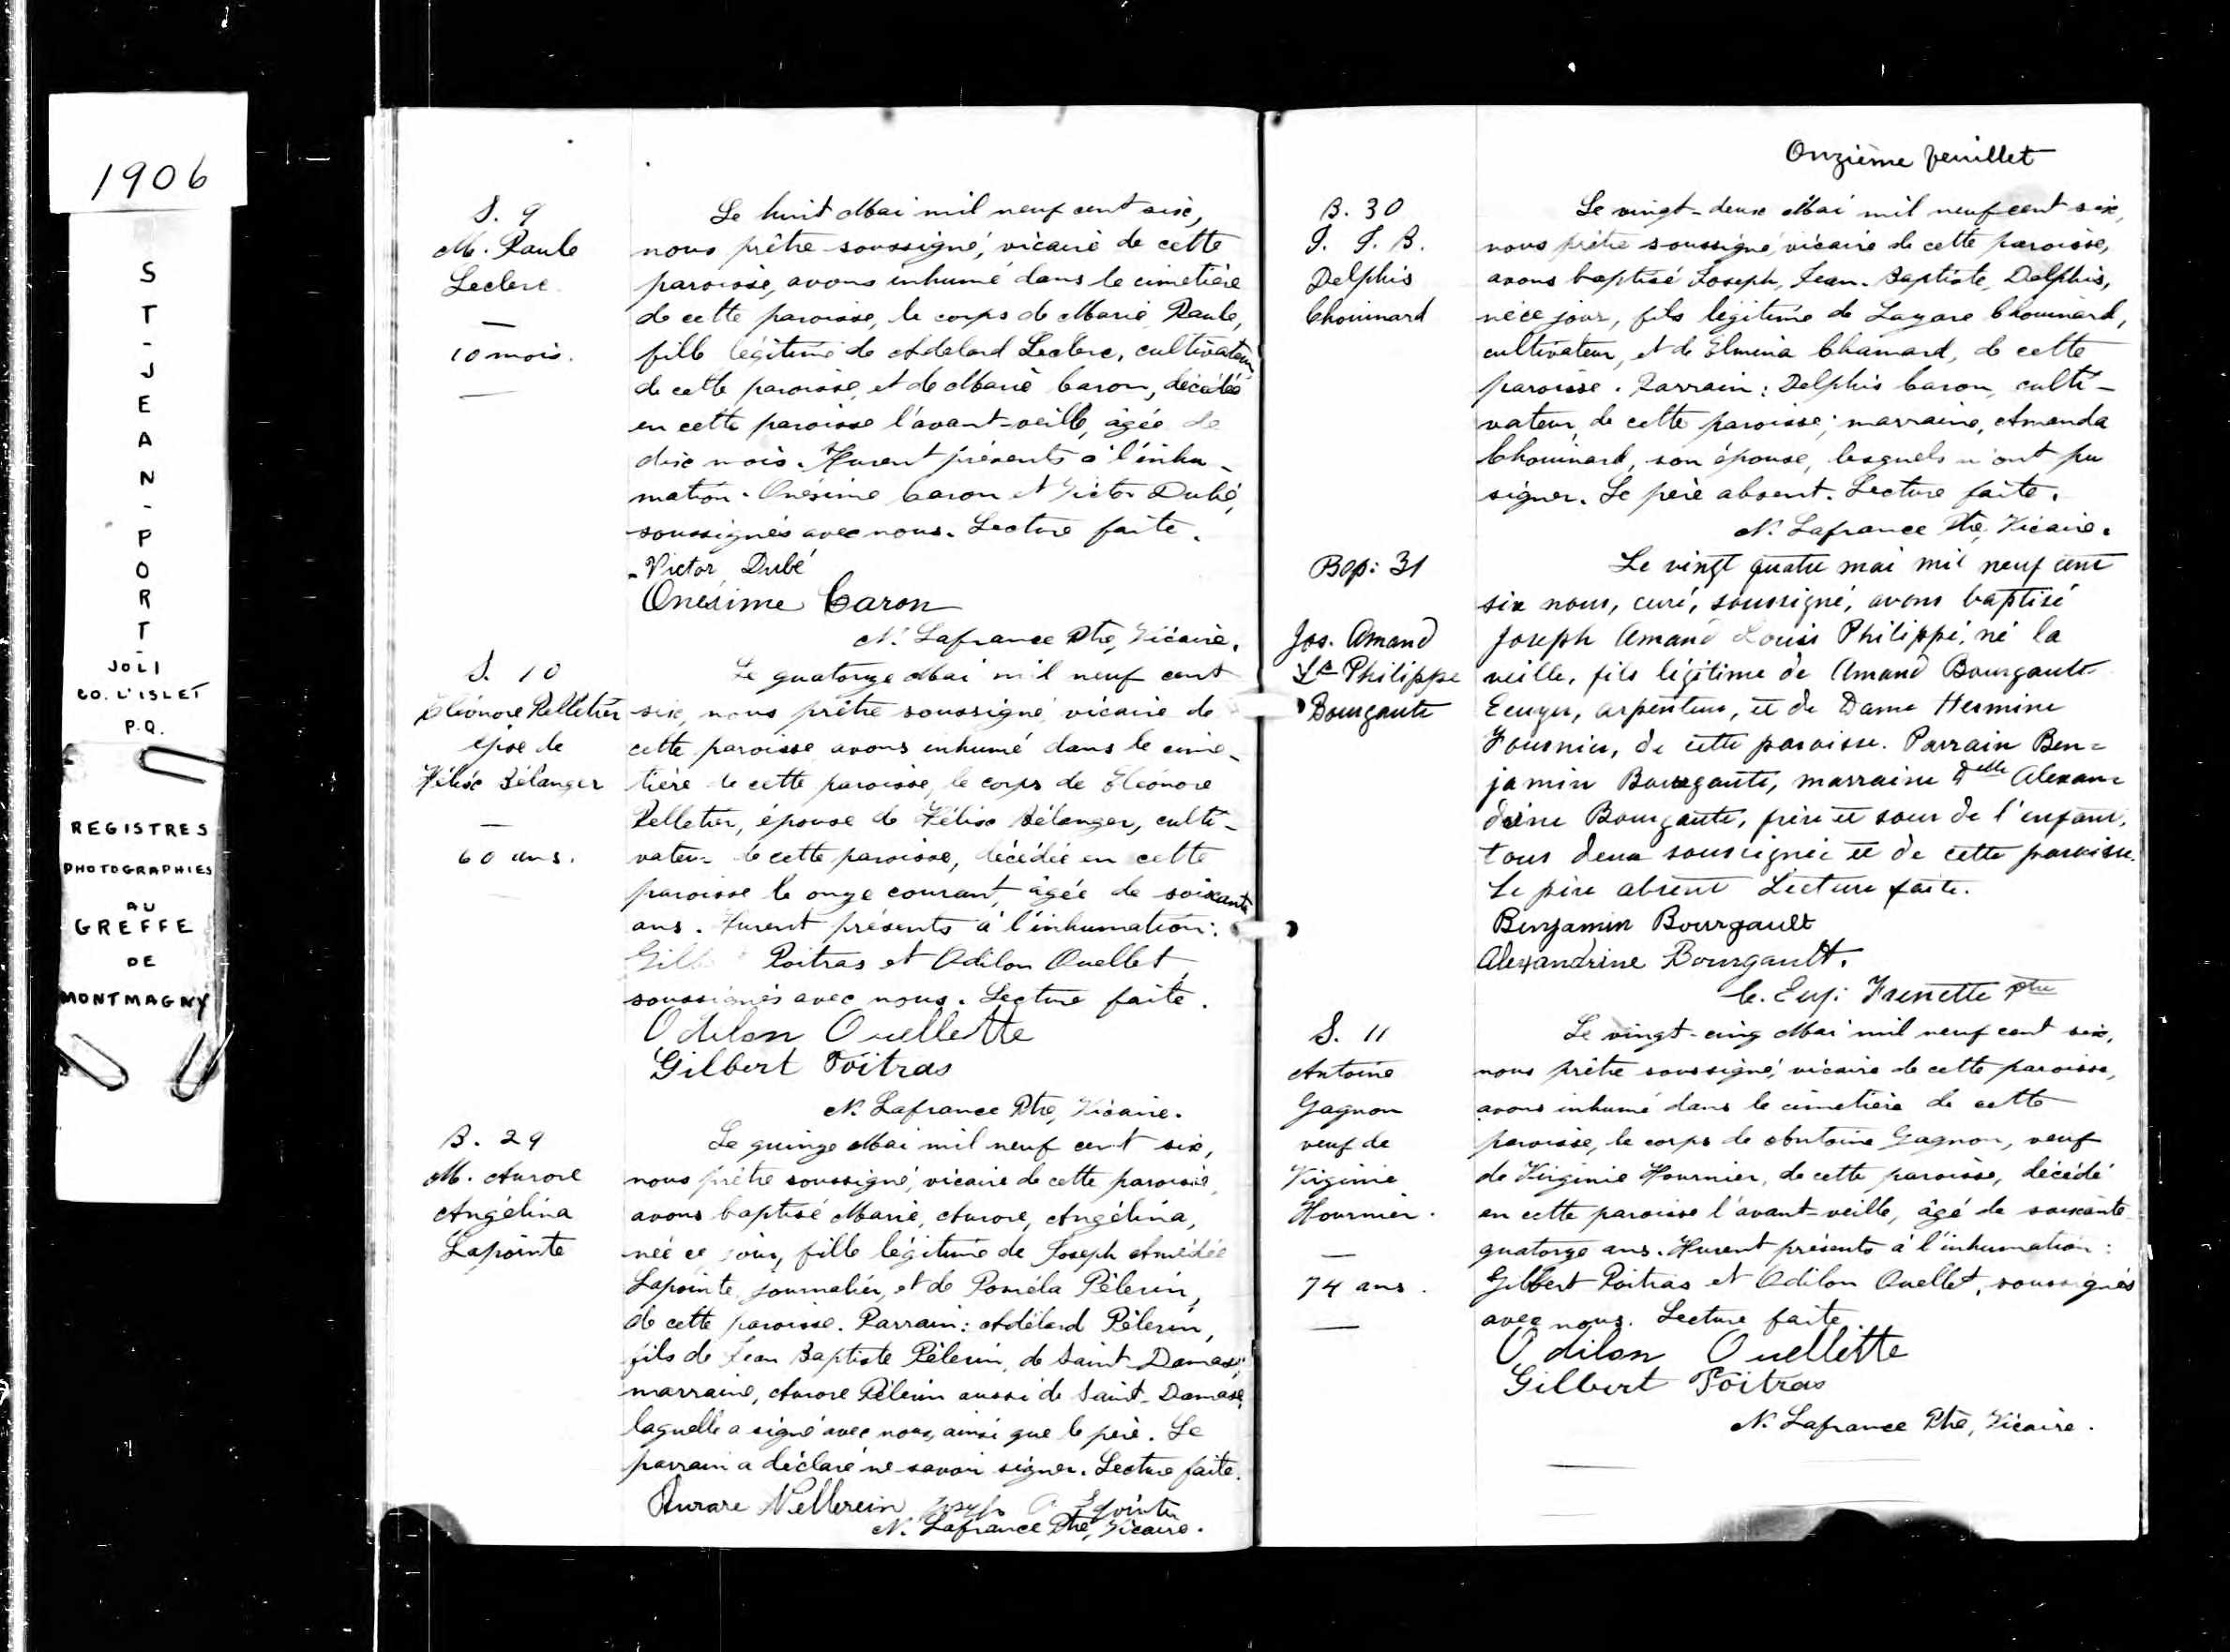 1906
S
T
-
J
E
A
N
-
P
O
R
T
-
JOLI
CO. L'ISLET
P.Q.
REGISTRES
PHOTOGRAPHIES
AU
GREFFE
DE
MONTMAGNY
S. 9
M. Paule
Leclerc
—
10 mois.
—
Le huit Mai mil neuf cent six,
nous prêtre soussigné, vicaire de cette
paroisse, avons inhumé dans le cimetière
de cette paroisse, le corps de Marie Paule,
fille légitime de Adelard Leclerc, cultivateur
de cette paroisse, et de Marie Caron, décédée
en cette paroisse l'avant-veille, âgée de
dix mois. Furent présents à l'inhu-
mation. Onésime Caron et Victor Dubé,
soussignés avec nous. Lecture faite.
Victor Dubé
Onesime Caron
N. Lafrance Ptre, Vicaire.
S. 10
Eléonore Pelletier
épse de
Félix Bélanger
—
60 ans.
Le quatorze Mai mil neuf cent
six, nous prêtre soussigné vicaire de
cette paroisse avons inhumé dans le cime-
tière de cette paroisse, le corps de Eléonore
Pelletier, épouse de Félix Bélanger, culti-
vateur de cette paroisse, décédée en cette
paroisse le onze courant, âgée de soixante
ans. Furent présents à l'inhumation:
Poitras et Odilon Ouellet,
soussignés avec nous. Lecture faite.
Odilon Ouellette
Gilbert Poitras
N. Lafrance Ptre, Vicaire.
B. 29
M. Aurore
Angélina
Lapointe
Le quinze Mai mil neuf cent six,
nous prêtre soussigné, vicaire de cette paroisse,
avons baptisé Marie, Aurore, Angélina,
née ce jour, fille légitime de Joseph Amédée
Lapointe journalier, et de Poméla Pèlerin,
de cette paroisse. Parrain: Adélard Pèlerin,
fils de Jean Baptiste Pèlerin, de Saint-Damase;
marraine, Aurore Pèlerin aussi de Saint-Damase,
laquelle a signé avec nous, ainsi que le père. Le
parrain a déclaré ne savoir signer. Lecture faite.
Aurore Pellerein Joseph A Lapointe
N. Lafrance Ptre, Vicaire.
Onzième feuillet
B. 30
J. J. B.
Delphis
Chouinard
Le vingt-deux Mai mil neuf cent six,
nous prêtre soussigné, vicaire de cette paroisse,
avons baptisé Joseph, Jean-Baptiste, Delphis,
né ce jour, fils légitime de Lazare Chouinard,
cultivateur, et de Elmina Chamard, de cette
paroisse. Parrain: Delphis Caron, culti-
vateur, de cette paroisse; marraine, Amanda
Chouinard, son épouse, lesquels n'ont pu
signer. Le père absent. Lecture faite.
N. Lafrance Ptre, Vicaire.
Bap: 31
Jos. Amand
Ls Philippe
Bourgault
Le vingt quatre mai mil neuf cent
six nous, curé, soussigné, avons baptisé
Joseph Amand Louis Philippe, né la
veille, fils légitime de Amand Bourgault
Ecuyer, arpenteur, et de Dame Hermine
Fournier, de cette paroisse. Parrain Ben=
jamin Bourgault, marraine Delle Alexan=
drine Bourgault, frère et soeur de l'enfant,
tous deux soussignés et de cette paroisse.
Le père absent Lecture faite.
Benjamin Bourgault
Alexandrine Bourgault.
C. Eug: Frenette ptre
S. 11
Antoine
Gagnon
veuf de
Virginie
Fournier.
—
74 ans.
—
Le vingt-cinq Mai mil neuf cent six,
nous prêtre soussigné, vicaire de cette paroisse,
avons inhumé dans le cimetière de cette
paroisse, le corps de Antoine Gagnon, veuf
de Virginie Fournier, de cette paroisse, décédé
en cette paroisse l'avant-veille, âgé de soixante
quatorze ans. Furent présents à l'inhumation:
Gilbert Poitras et Odilon Ouellet, soussignés
avec nous. Lecture faite.
Odilon Ouellette
Gilbert Poitras
N. Lafrance Ptre, Vicaire.